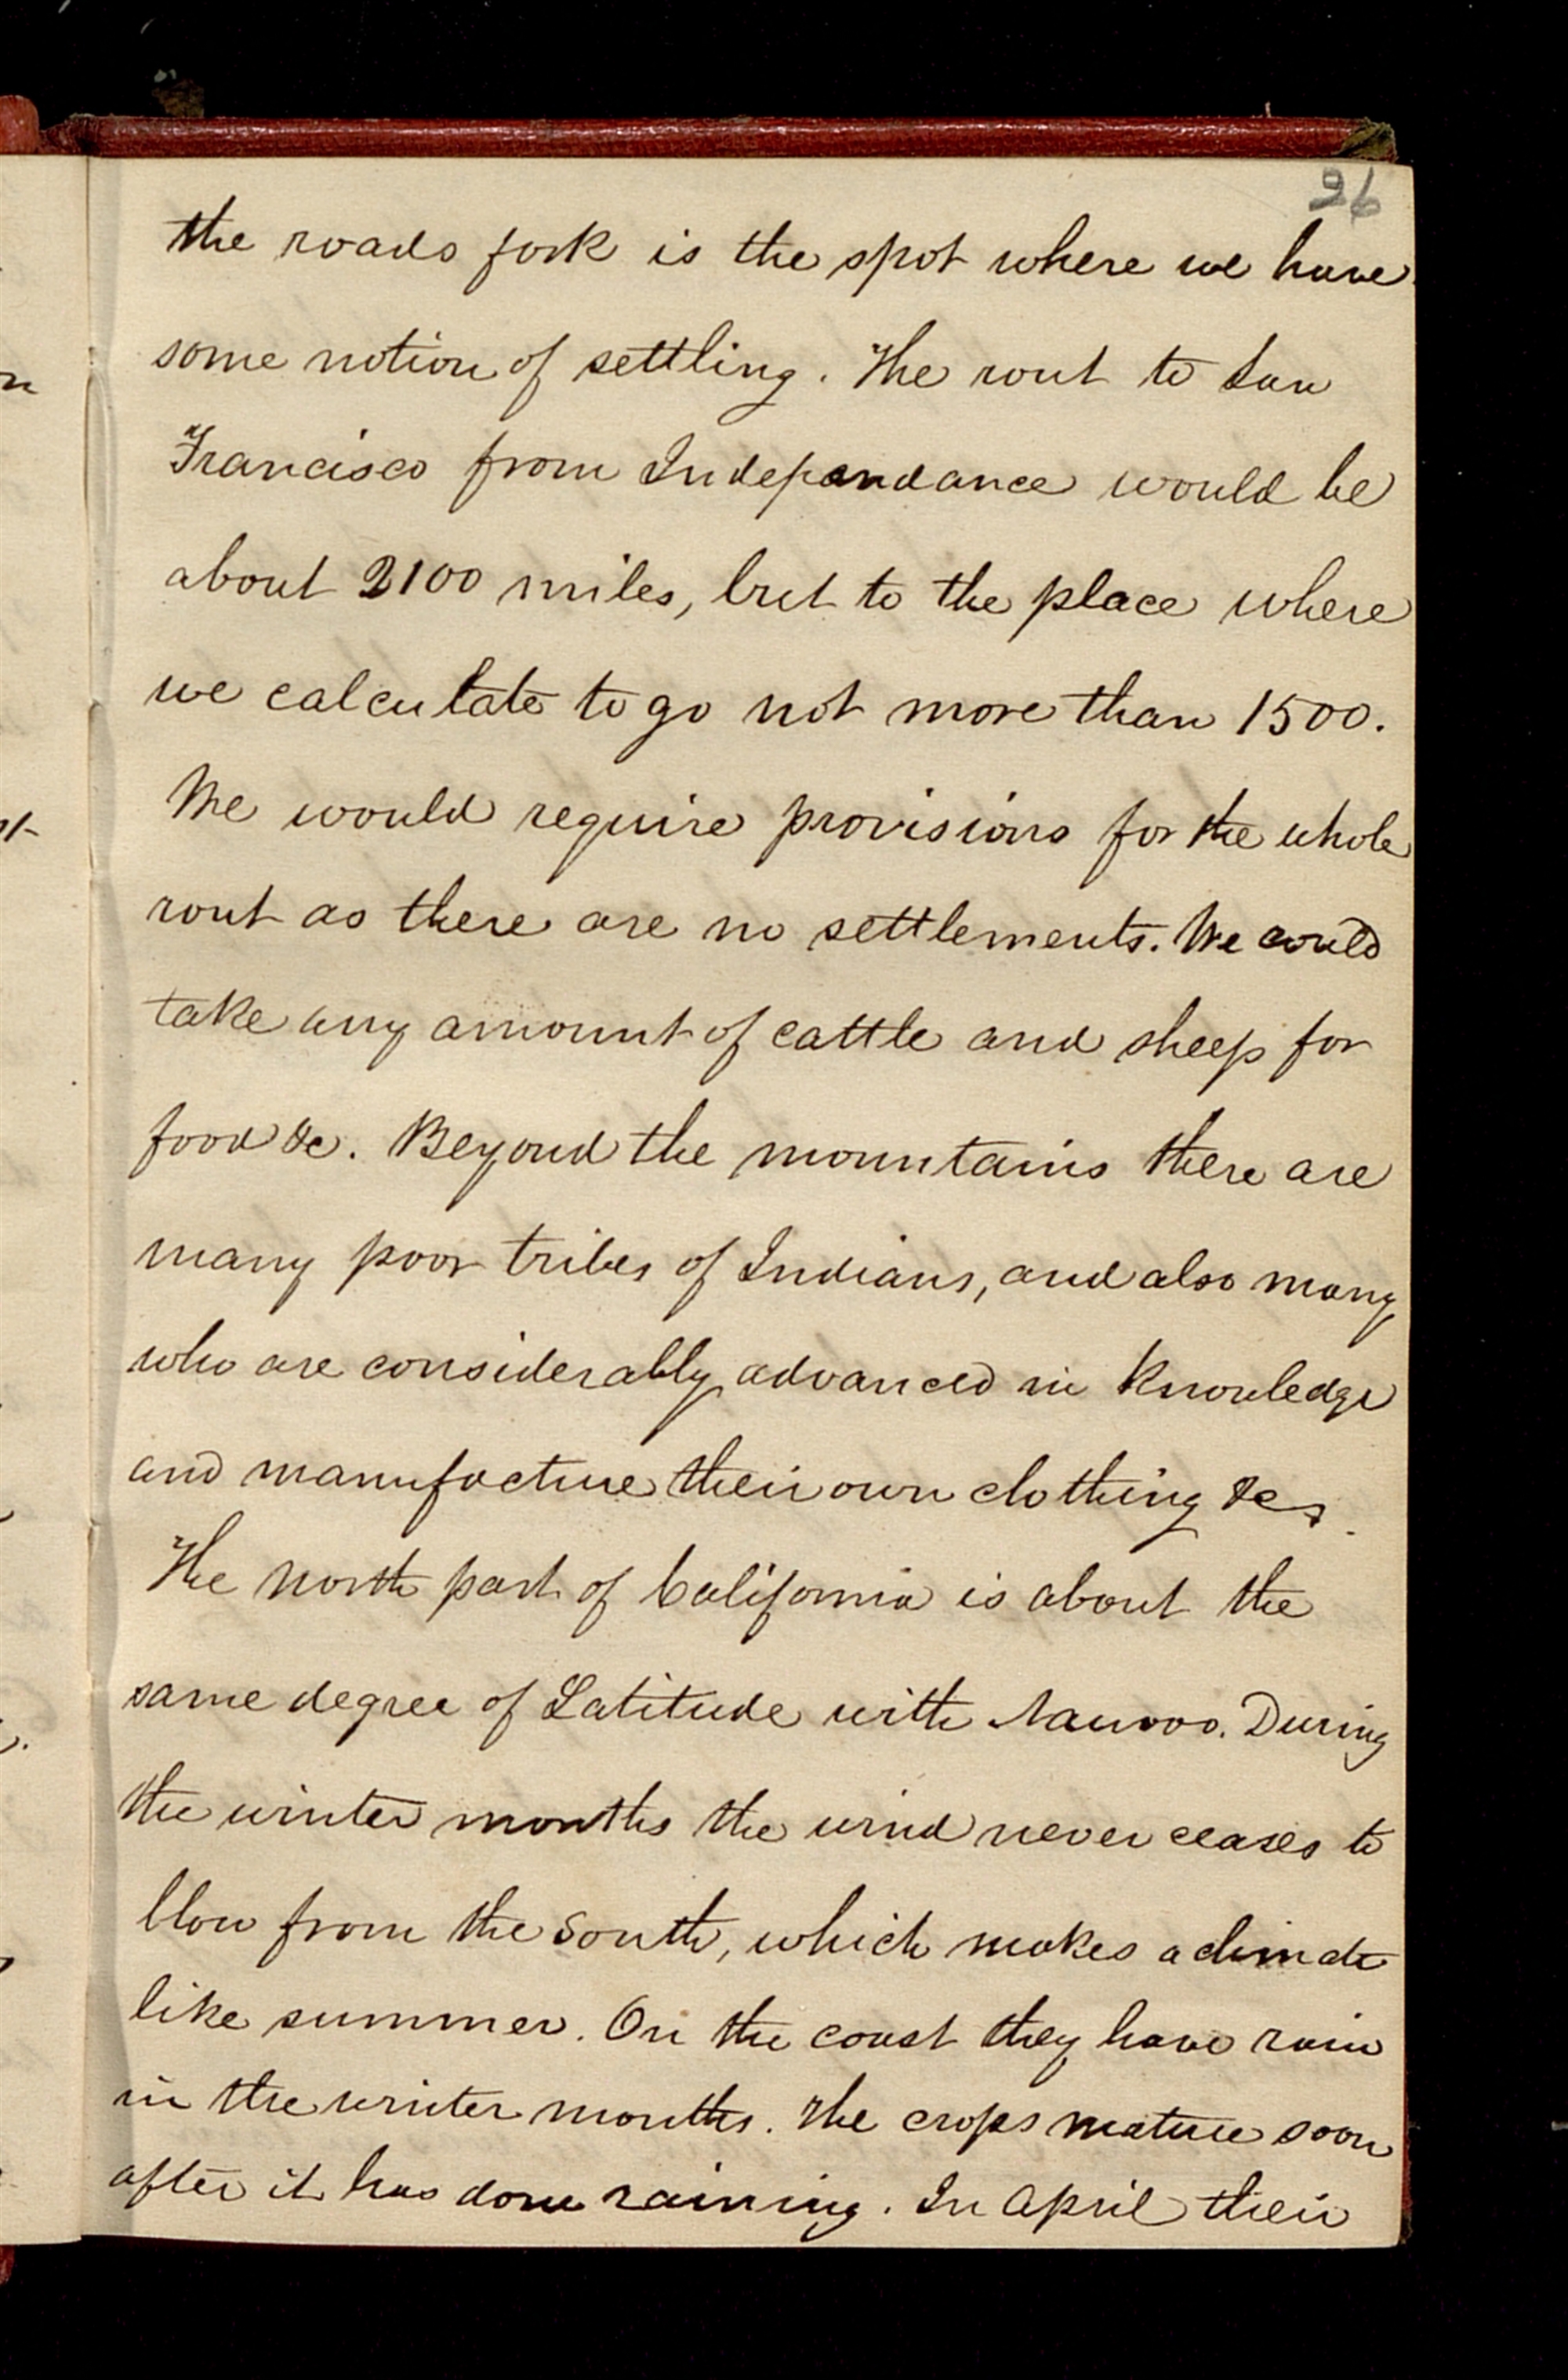 26
the roads fork is the spot where we have
some notion of settling. The rout to San
Francisco from Independance would be
about 2100 miles, but to the place where
we calculate to go not more than 1500.
We would require provisions for the whole
rout as there are no settlements. We could
take any amount of cattle and sheep for
food &c. Beyond the mountains there are
many poor tribes of Indians, and also many
who are considerably advanced in knowledge
and manufacture their own clothing &c.
The north part of California is about the
same degree of Latitude with Nauvoo. During
the winter months the wind never ceases to
blow from the south, which makes a climate
like summer. On the coast they have rain
in the winter months. The crops mature soon
after it has done raining. In April their